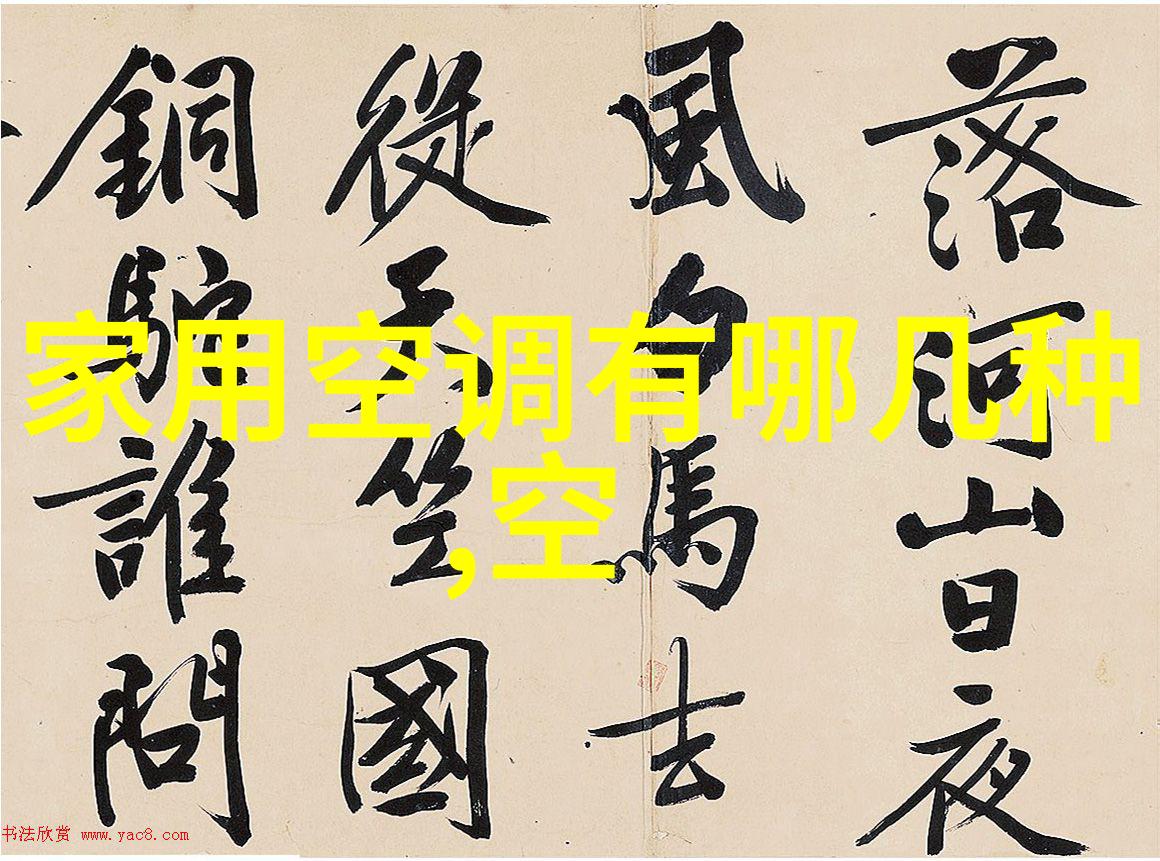 落河山日夜
風白馬去
從天竺國
銅駝誰問
家用空调有哪几种
,空
书法欣赏 www.yac8.com